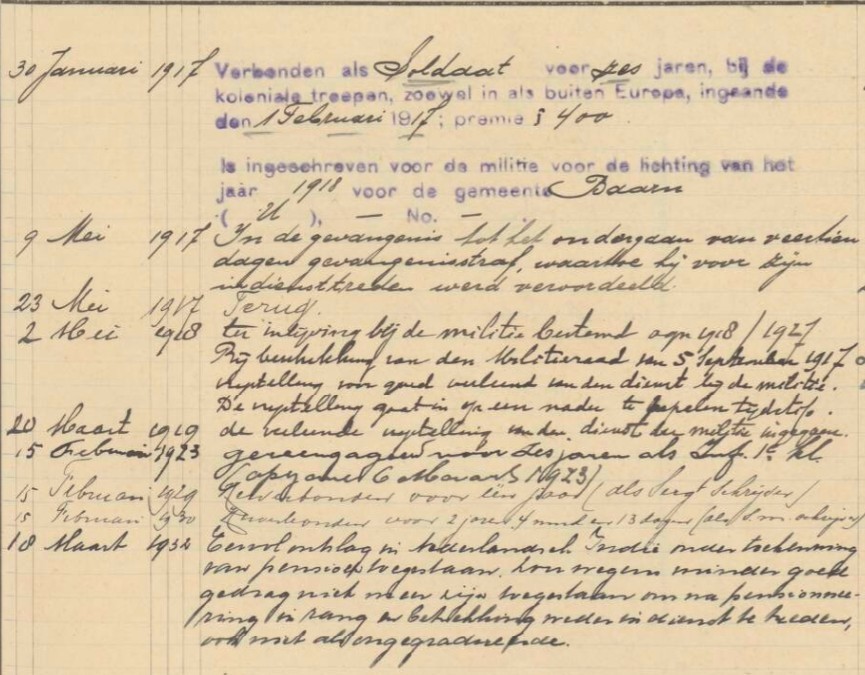 30 Januari 1917 Verbonden als Soldaat voor zes jaren, bij de
koloniale troepen, zoowel in als buiten Europa, ingaande
den 1 Februari 1917; premie f 400
Is ingeschreven voor de militie voor de lichting van het
jaar 1918 voor de gemeente Baarn
( ), — No. —
9 Mei 1917 In de gevangenis tot het ondergaan van veertien
dagen gevangenisstraf, waartoe hij voor zijn
indiensttreden werd veroordeeld.
23 Mei 1917 Terug.
2 Mei 1918 ter inlijving bij de militie bestemd 1918/1927
Bij beschikking van den Militieraad van 5 September 1917
vrijstelling voor goed verleend van den dienst bij de militie.
De vrijstelling gaat in op een nader te bepalen tijdstip.
20 Maart 1919 de verleende vrijstelling van den dienst der militie ingegaan.
15 Februari 1923 gereengageerd voor zes jaren als Inf. 1e kl.
6 Maart 1923)
15 Februari 1929 voor één jaar (als Sergt Schrijver)
15 Februari 1930 voor 2 jaren 4 mnd en 13 dagen (als
18 Maart 1932 Eervol ontslag in Nederlandsch Indië onder toekenning
van pensioen toegestaan. Zou wegens minder goed
gedrag niet meer zijn toegestaan om na pensionnee-
ring in rang en betrekking weder in dienst te treden,
ook niet als ongegradueerde.